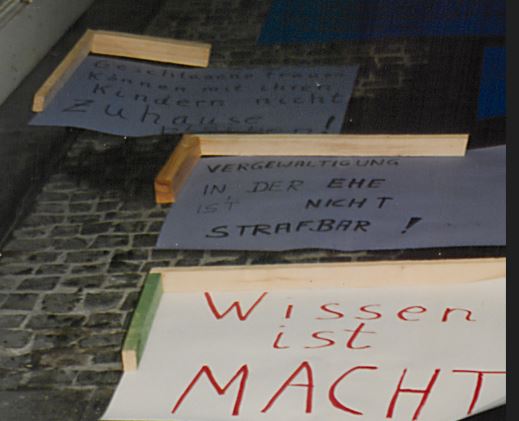 Geschlagene Frauen
können mit ihren
Kindern nicht
Zuhause
bleiben!
VERGEWALTIGUNG
IN DER EHE
IST NICHT
STRAFBAR !
Wissen
ist
MACHT